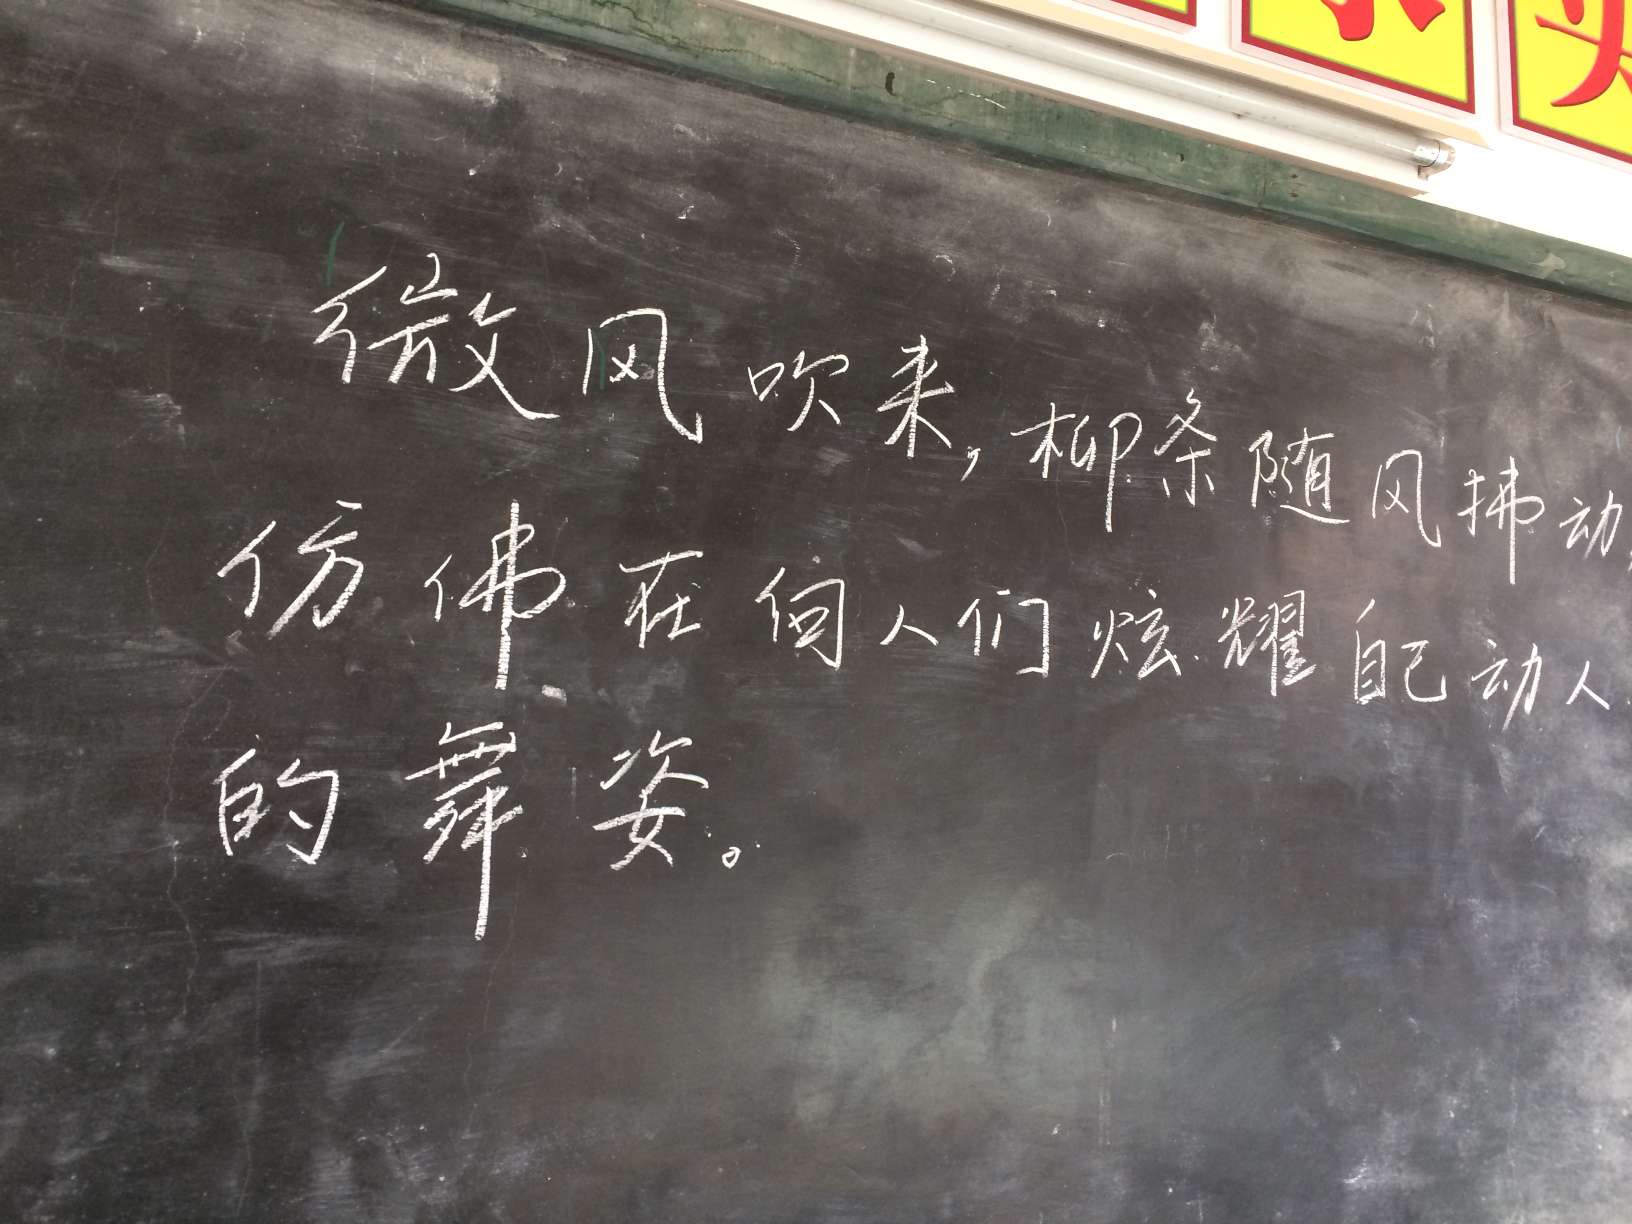 微风吹来,柳条随风拂动,
仿佛在向人们炫耀自己动人
的舞姿。